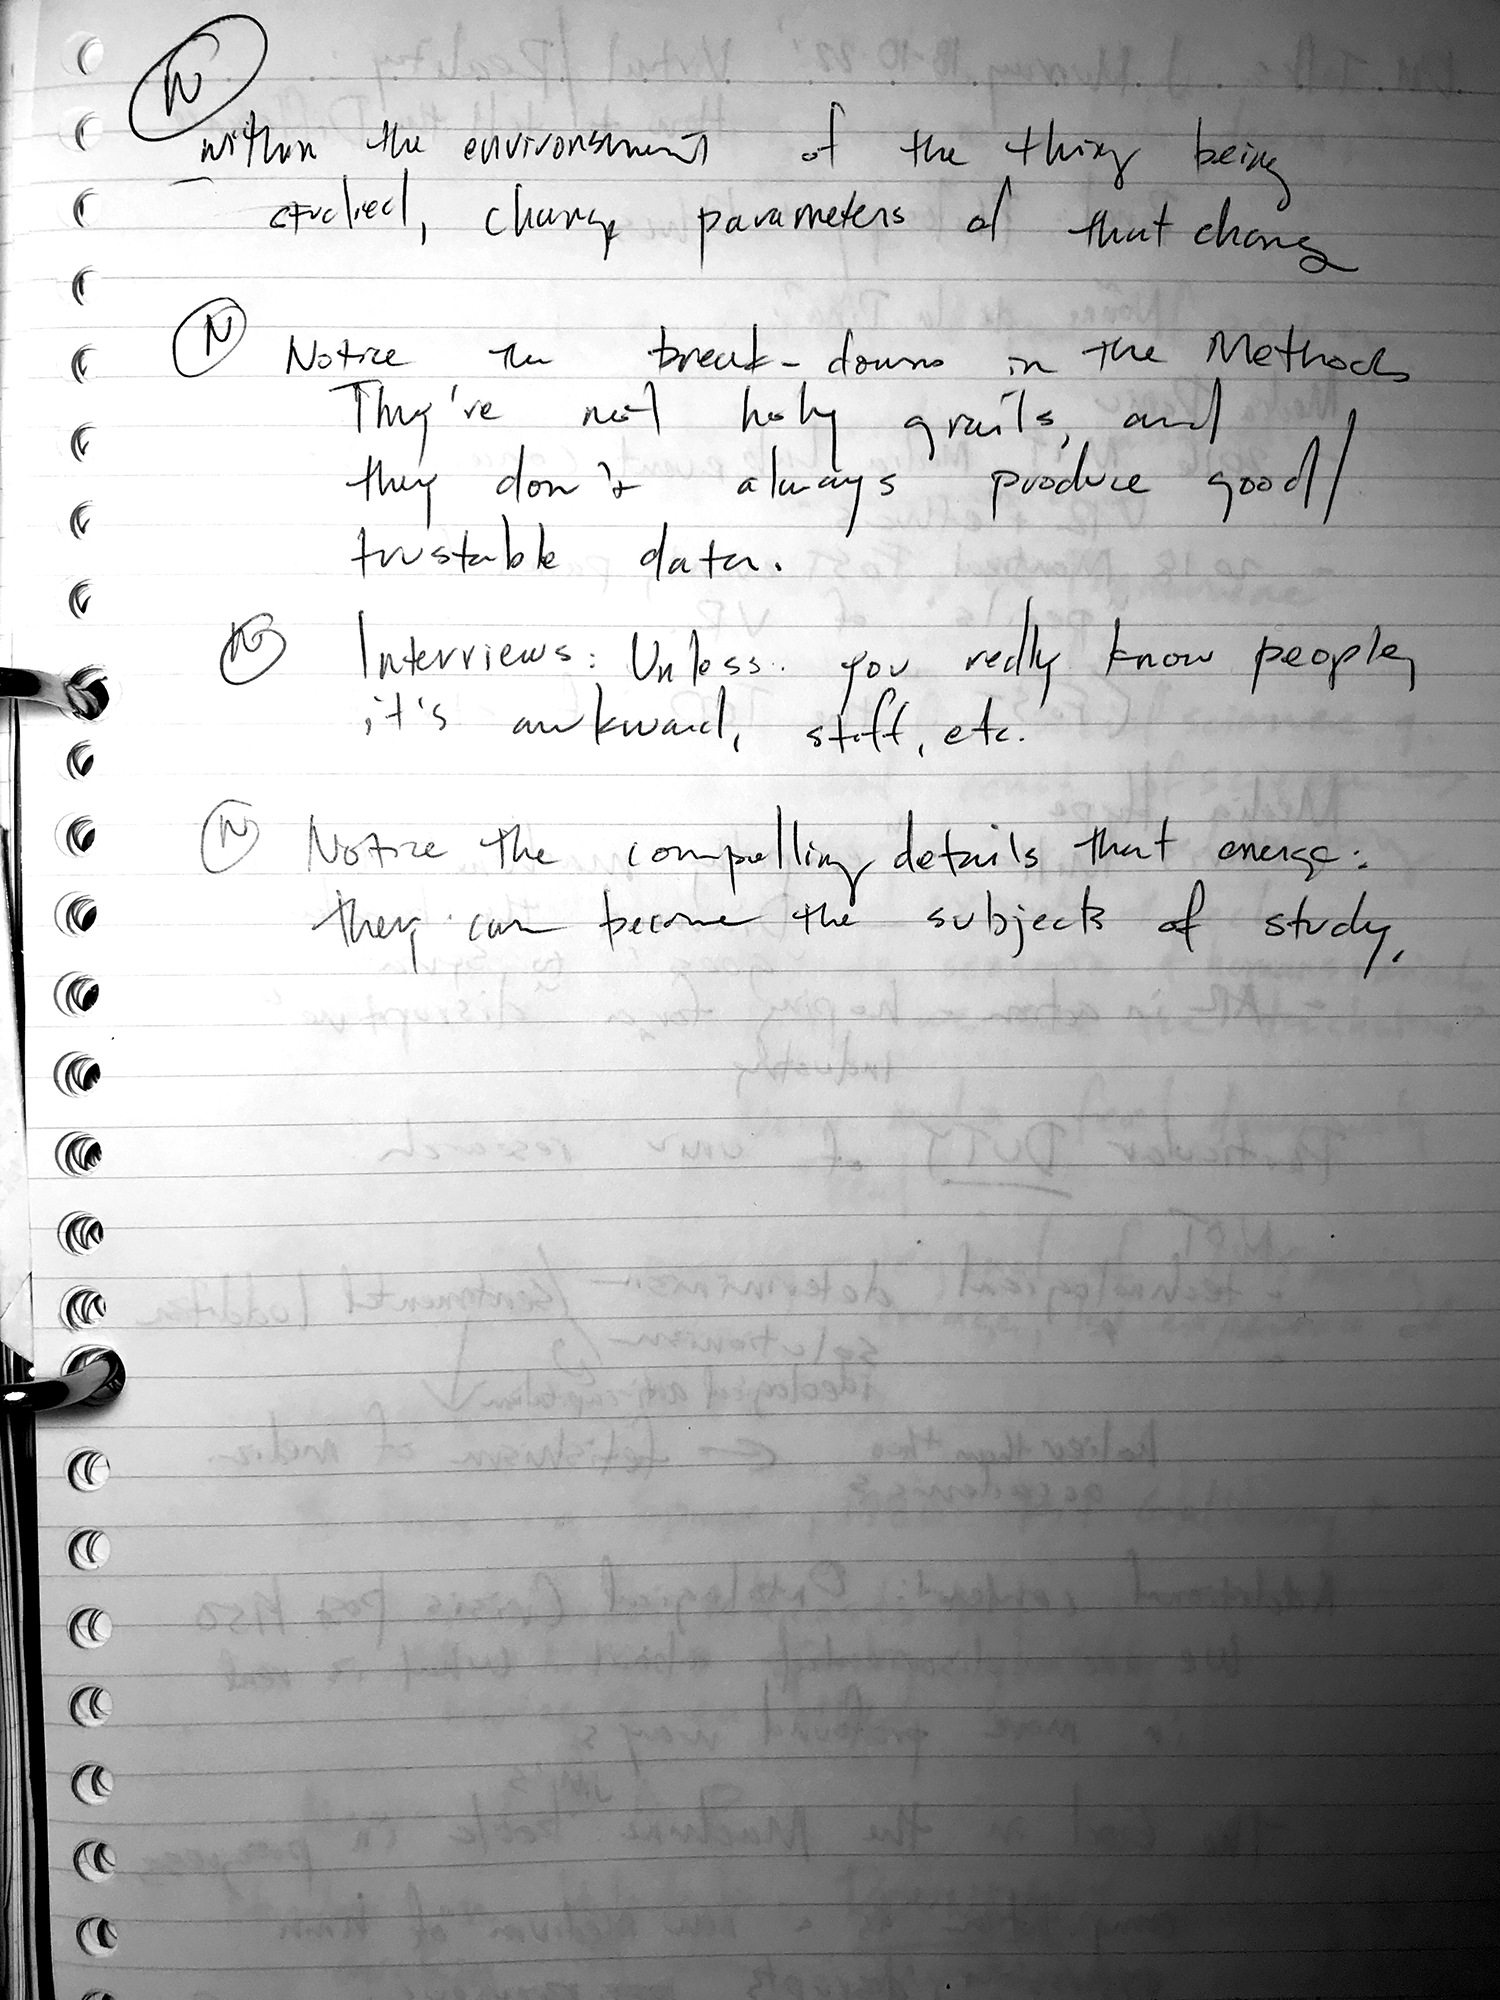 N
within the environment of the thing being
studied, change parameters of that change
N Notice the break-downs in the Methods
They're not holy grails, and
they don't always produce good/
trustable data.
N Interviews: Unless you really know people,
it's awkward, stiff, etc.
N Notice the compelling details that emerge:
they can become the subjects of study.